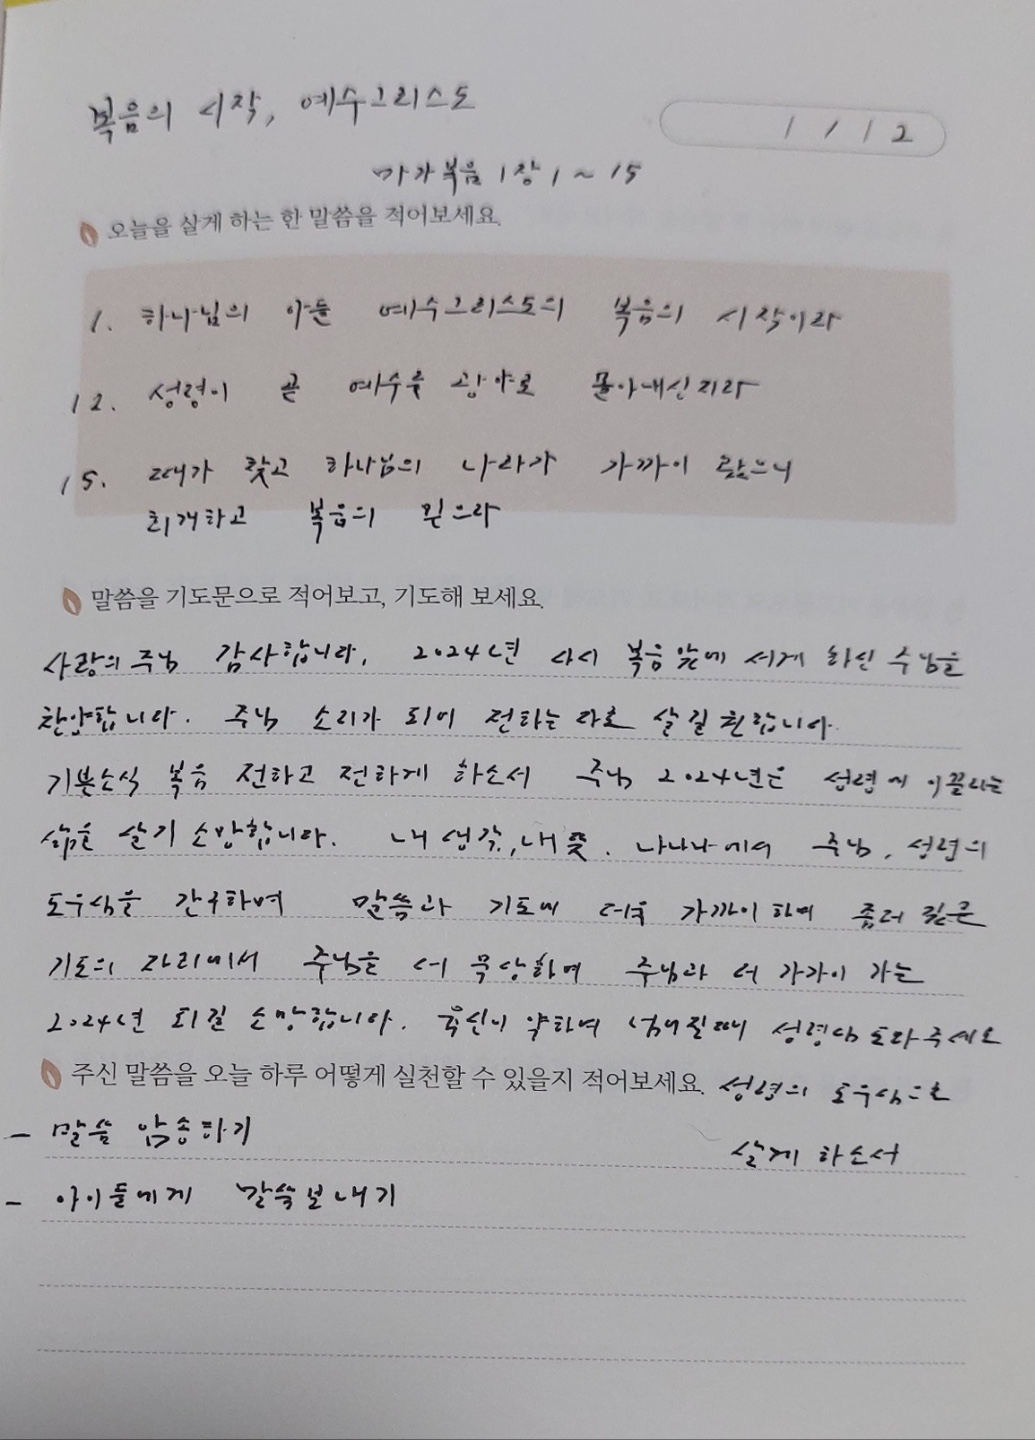 복음의 시작, 예수그리스도
1 / 12
마가복음 1장 1 ~ 15
오늘을 살게 하는 한 말씀을 적어보세요.
1. 하나님의 아들 예수그리스도의 복음의 시작이라
12. 성령이 곧 예수를 광야로 몰아내신지라
15. 때가 찼고 하나님의 나라가 가까이 왔으니
회개하고 복음의 믿으라
말씀을 기도문으로 적어보고, 기도해 보세요.
사랑의 주님 감사합니다. 2024년 다시 복음앞에 서게 하신 주님을
찬양합니다. 주님 소리가 되어 전하는 자로 살길 원합니다.
기쁜소식 복음 전하고 전하게 하소서 주님 2024년은 성령에 이끌리는
삶을 살기 소망합니다. 내 생각, 내 뜻. 나나나에서 주님, 성령의
도우심을 간구하며 말씀과 기도에 더욱 가까이하며 좀더 깊은
기도의 자리에서 주님을 더 묵상하며 주님과 더 가까이 가는
2024년 되길 소망합니다. 육신이 약하여 넘어질때 성령님 도와주세요
주신 말씀을 오늘 하루 어떻게 실천할 수 있을지 적어보세요. 성령의 도우심으로
- 말씀 암송하기
살게 하소서
- 아이들에게 말씀보내기